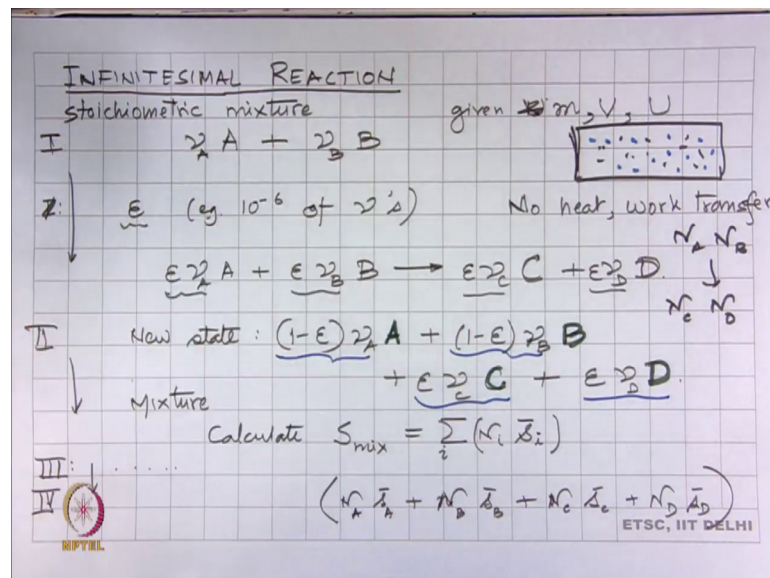 INFINITESIMAL REACTION
stoichiometric mixture given m, V, U
I ν_A A + ν_B B
ε (eg. 10⁻⁶ of ν's) No heat, work transfer
N_A N_B
↓
ε ν_A A + ε ν_B B ⟶ ε ν_C C + ε ν_D D.
N_C N_D
II New state: (1-ε) ν_A A + (1-ε) ν_B B
+ ε ν_C C + ε ν_D D.
Mixture
Calculate S_mix = Σ_i (N_i s̄_i)
III: ......
IV (N_A s̄_A + N_B s̄_B + N_C s̄_C + N_D s̄_D)
ETSC, IIT DELHI
NPTEL